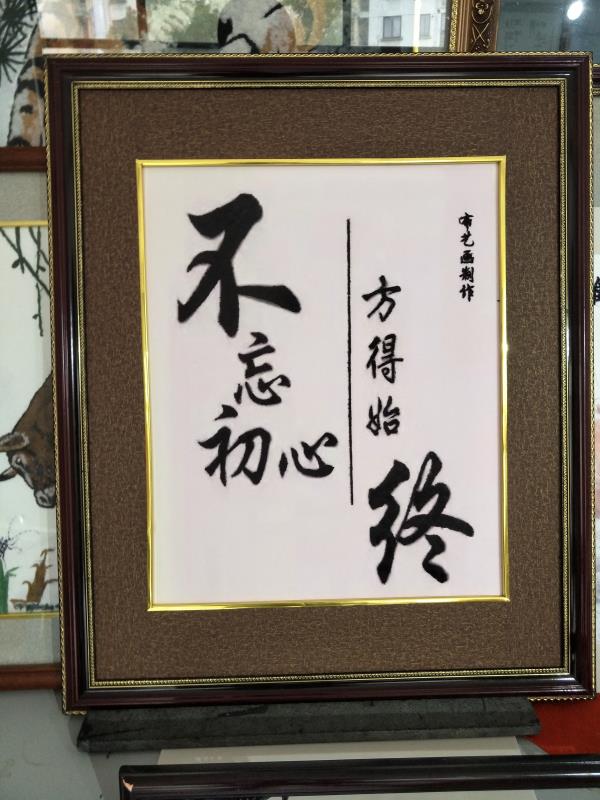 不忘初心
方得始终
布艺画制作